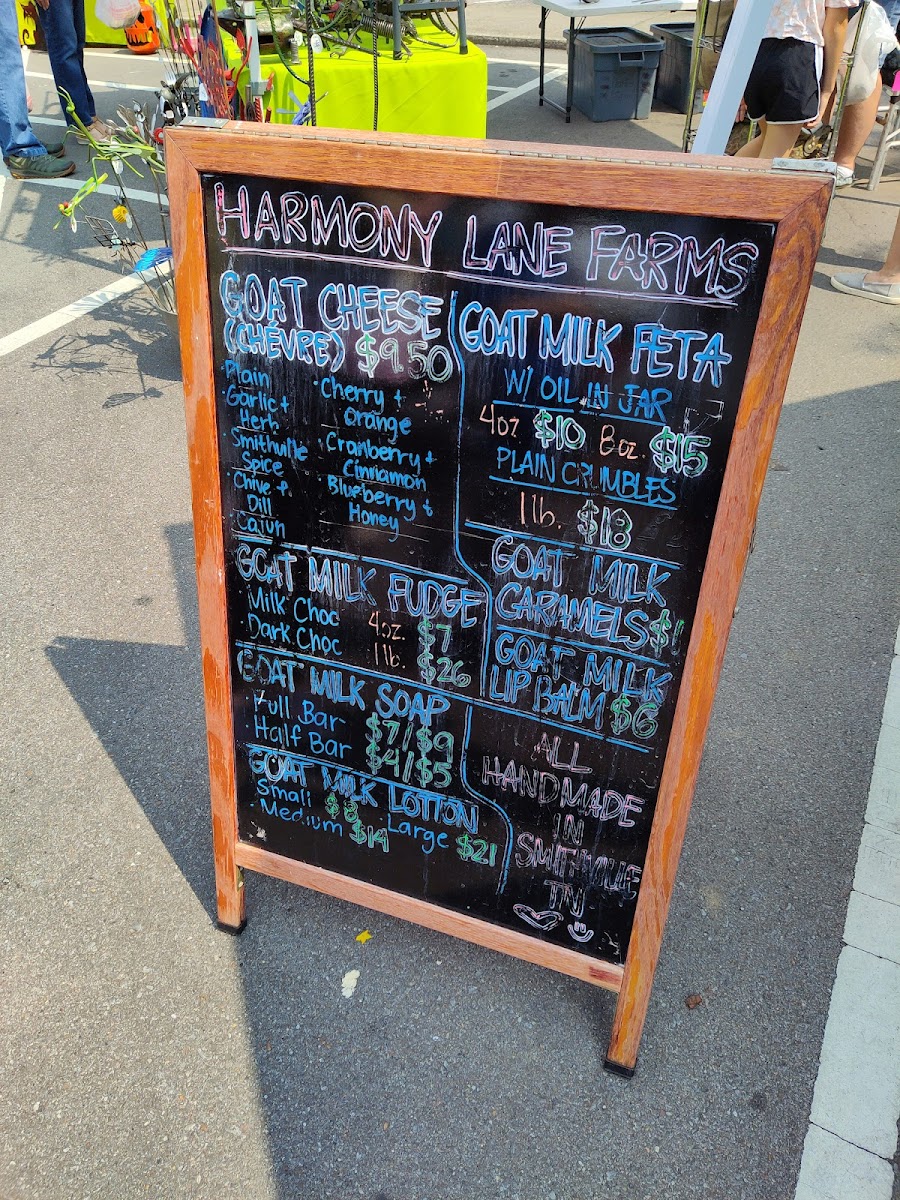 HARMONY LANE FARMS
GOAT CHEESE
(CHÉVRE) $9.50
· Plain
· Garlic +
Herb
· Smithville
Spice
· Chive +
Dill
· Cajun
· Cherry +
Orange
· Cranberry +
Cinnamon
· Blueberry +
Honey
GOAT MILK FUDGE
· Milk Choc
· Dark Choc
4oz. $7
1lb. $26
GOAT MILK SOAP
· Full Bar $7/$9
· Half Bar $4/$5
GOAT MILK LOTION
· Small $8
· Medium $14
· Large $21
GOAT MILK FETA
W/ OIL IN JAR
4oz $10 8oz. $15
PLAIN CRUMBLES
1lb. $18
GOAT MILK
CARAMELS $1
GOAT MILK
LIP BALM $6
ALL
HANDMADE
IN
SMITHVILLE
TN